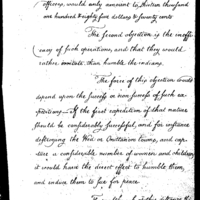 officers, would only amount to thirteen thousand
one hundred & eighty five dollars & twenty cents
The second objection is the ineffi
cacy of such operations, and that they would
rather irritate than humble the indians.
The force of this objection would
depend upon the success or non success of such ex
peditions — If the first expedition of that nature
should be considerably successful, and for instance
destroying the Wea or Ouiatanon towns, and cap
ture a considerable number of women and children
it would have the direct effect to humble them,
and induce them to sue for peace.